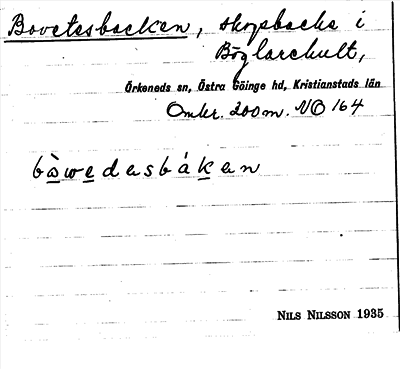 Bovetesbacken, skogsbacke i
Böglarehult,
Örkeneds sn, Östra Göinge hd, Kristianstads län
Omkr. 200 m. NO 164
bàwedasbákan
NILS NILSSON 1935